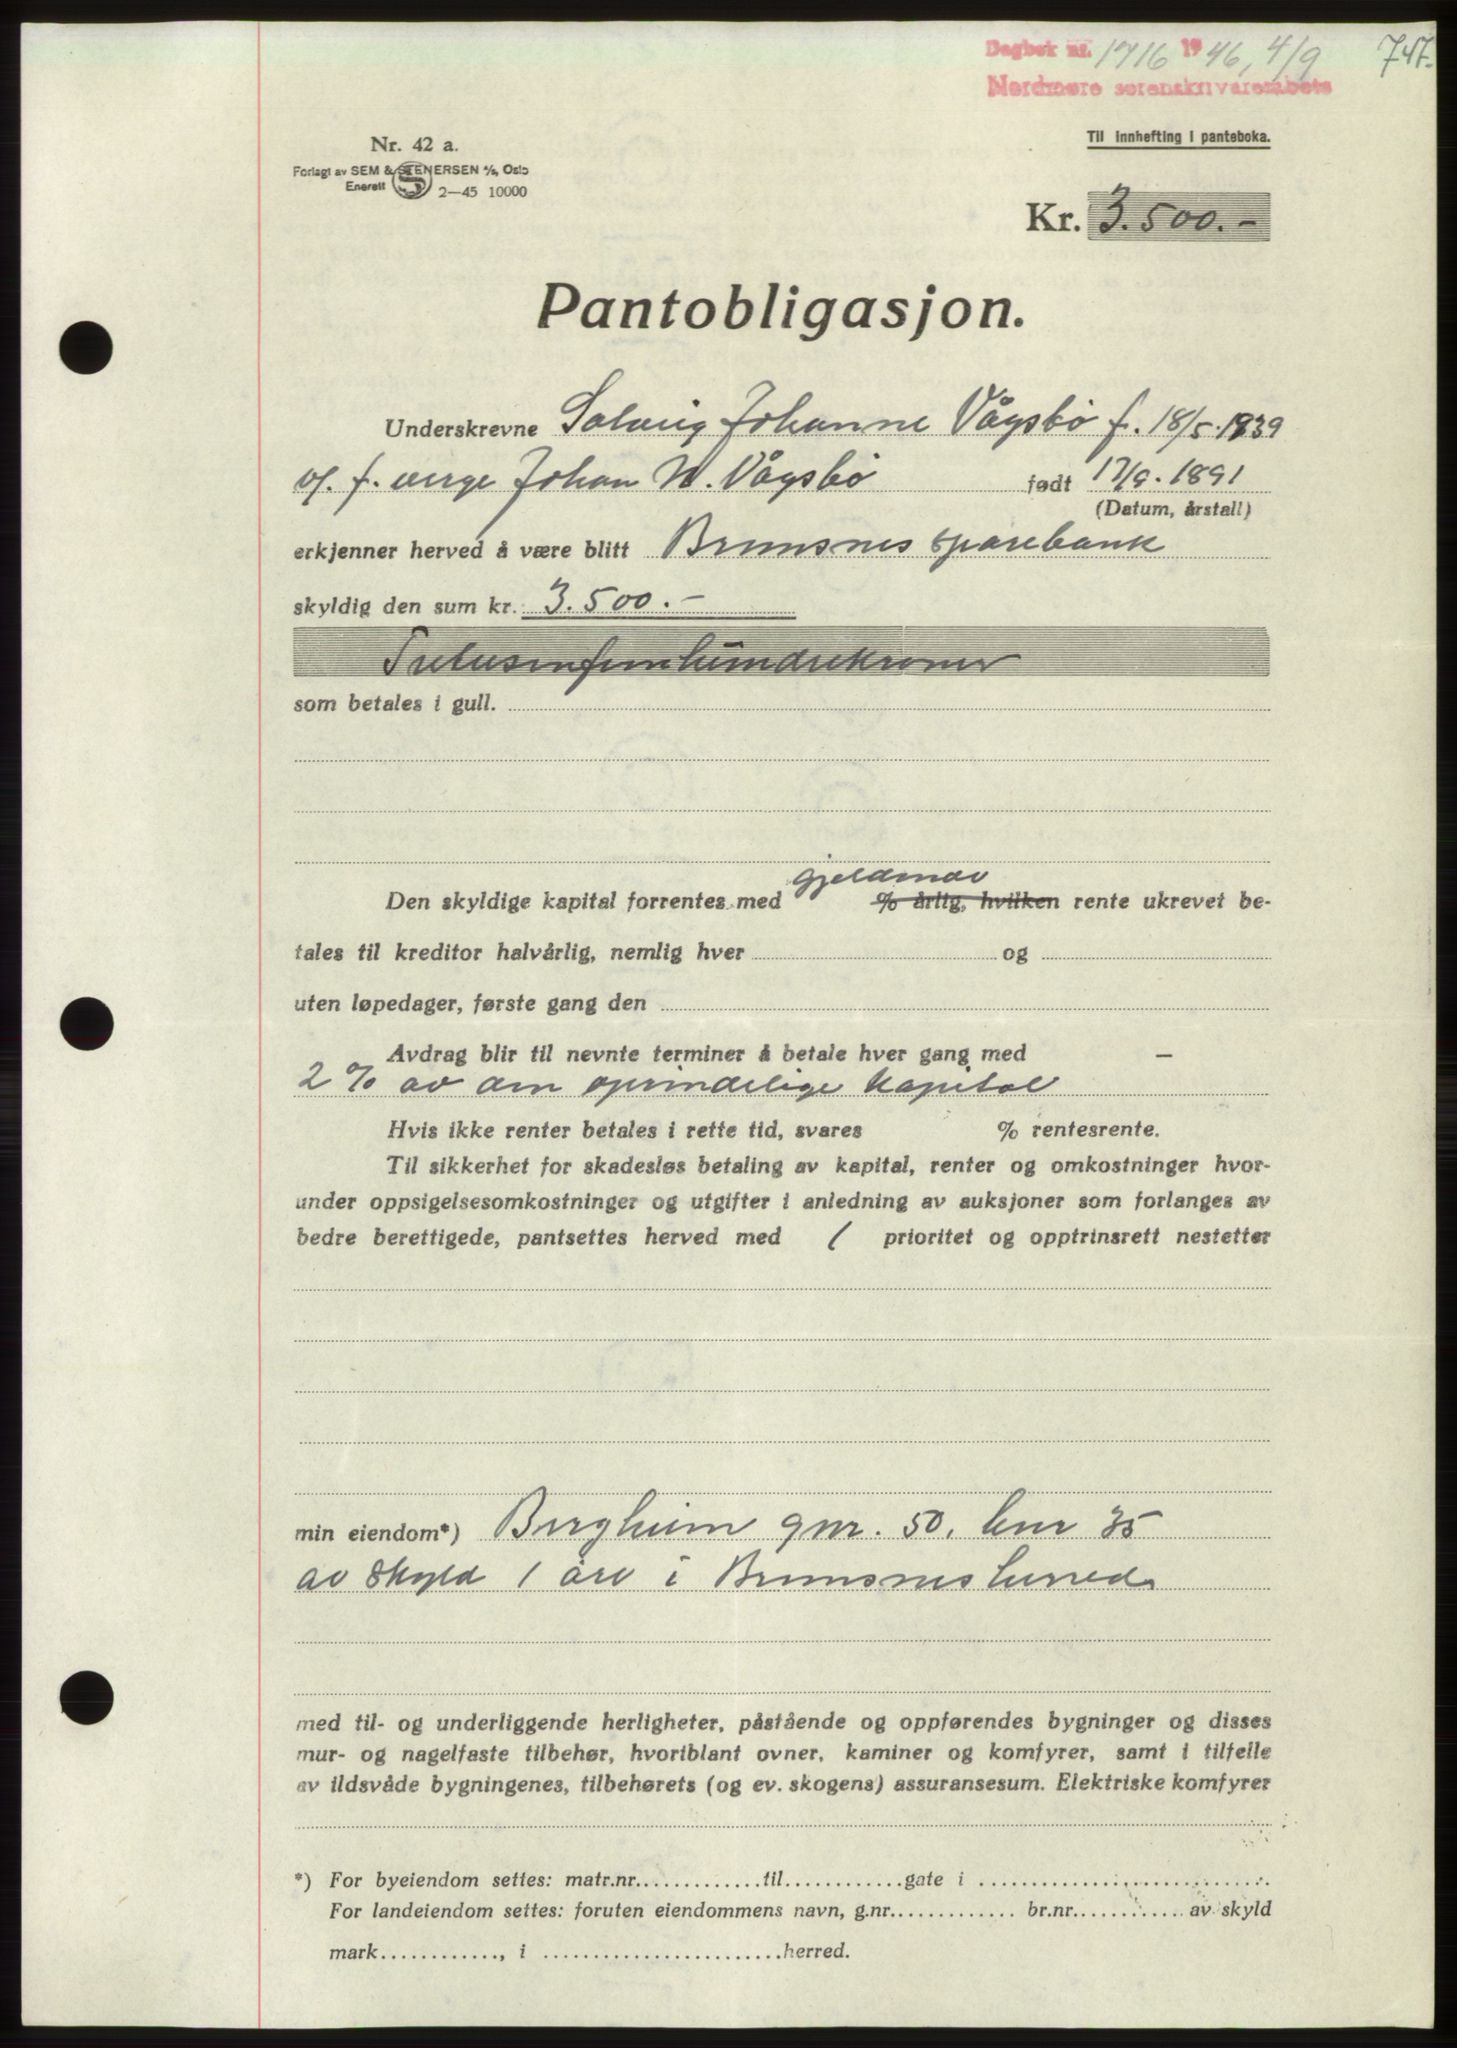 Dagbok nr. 1716 1946, 4/9
747.
Nordmøre sorenskriverembete
Til innhefting i panteboka.
Nr. 42 a.
Forlagt av SEM & STENERSEN A/S, Oslo
Enerett 2—45 10000
Kr. 3.500.-
Pantobligasjon.
Underskrevne Solveig Johanne Vågsbø f. 18/5.1939
v/. f. verge Johan N. Vågsbø født 17/9. 1891
(Datum, årstall)
erkjenner herved å være blitt Bremsnes sparebank
skyldig den sum kr. 3.500.-
Tretusenfemhundrekroner
som betales i gull.
gjeldende
Den skyldige kapital forrentes med % årlig, hvilken rente ukrevet be-
tales til kreditor halvårlig, nemlig hver og
uten løpedager, første gang den
Avdrag blir til nevnte terminer å betale hver gang med —
2 % av den oprindelige kapital
Hvis ikke renter betales i rette tid, svares % rentesrente.
Til sikkerhet for skadesløs betaling av kapital, renter og omkostninger hvor-
under oppsigelsesomkostninger og utgifter i anledning av auksjoner som forlanges av
bedre berettigede, pantsettes herved med 1 prioritet og opptrinsrett nestetter
min eiendom*) Bergheim gnr. 50, bnr 35
av skyld 1 øre i Bremsnes herred
med til- og underliggende herligheter, påstående og oppførendes bygninger og disses
mur- og nagelfaste tilbehør, hvoriblant ovner, kaminer og komfyrer, samt i tilfelle
av ildsvåde bygningenes, tilbehørets (og ev. skogens) assuransesum. Elektriske komfyrer
*) For byeiendom settes: matr.nr.............til............gate i ..............................
For landeiendom settes: foruten eiendommens navn, g.nr............. br.nr........... av skyld
mark............, i ........................herred.